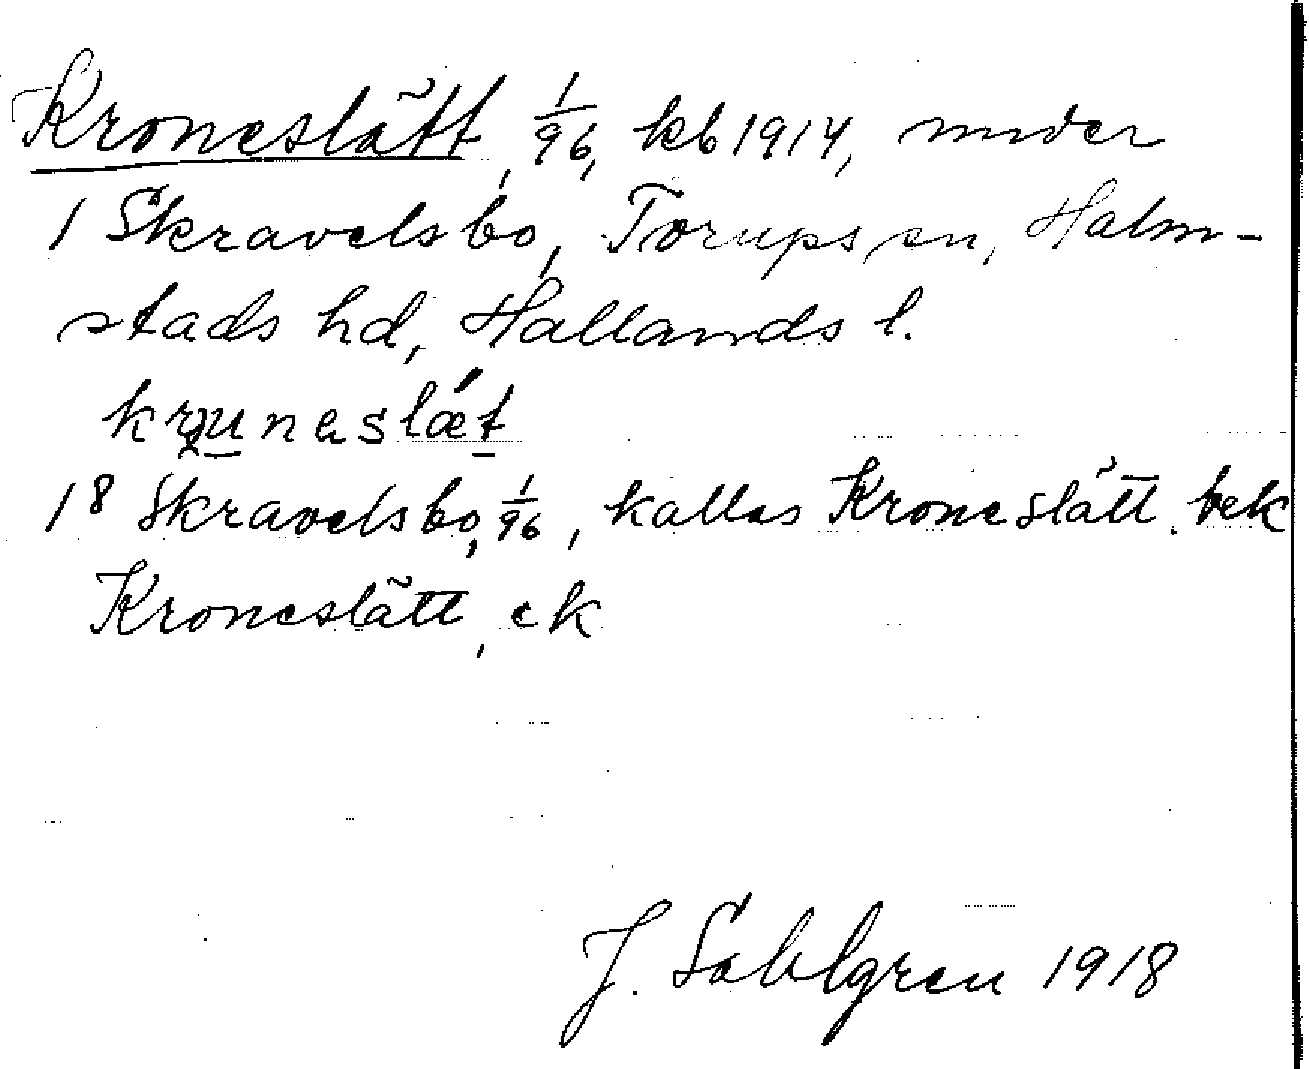 Kroneslätt, 1/96, kb 1914, under
1 Skravelsbo, Torups sn, Halm-
stads hd, Hallands l.
krunəslæ´t
1⁸ Skravelsbo, 1/96, kallas Kroneslätt. bek
Kroneslätt, ek
J. Sahlgren 1918